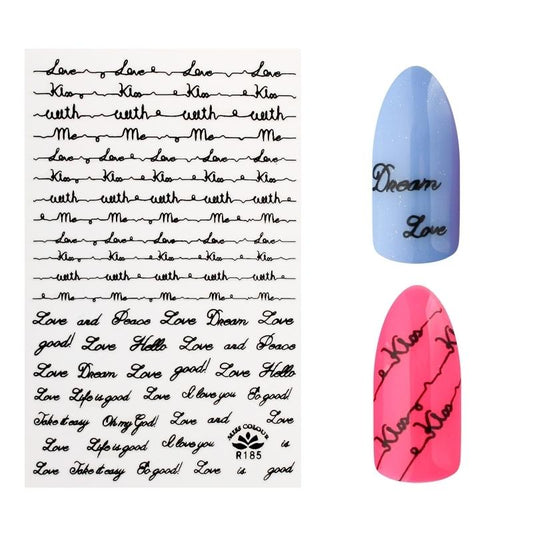 Love Love Love Love
Kiss Kiss Kiss Kiss
with with with with
Me Me Me Me
Love Love Love Love Love
Kiss Kiss Kiss Kiss Kiss
with with with with with
Me Me Me Me Me
Love Love Love Love Love
Kiss Kiss Kiss Kiss Kiss
with with with with with
Me Me Me Me Me
Love and Peace Love Dream Love
good! Love Hello Love and Peace
Love Dream Love good! Love Hello
Love Life is good Love I love you So good!
Take it easy Oh my God! Love and Love
Love Life is good I love you is
Love Take it easy So good! Love is good
MISS COLOUR
R185
Dream
Love
Kiss
Kiss
Kiss
Kiss